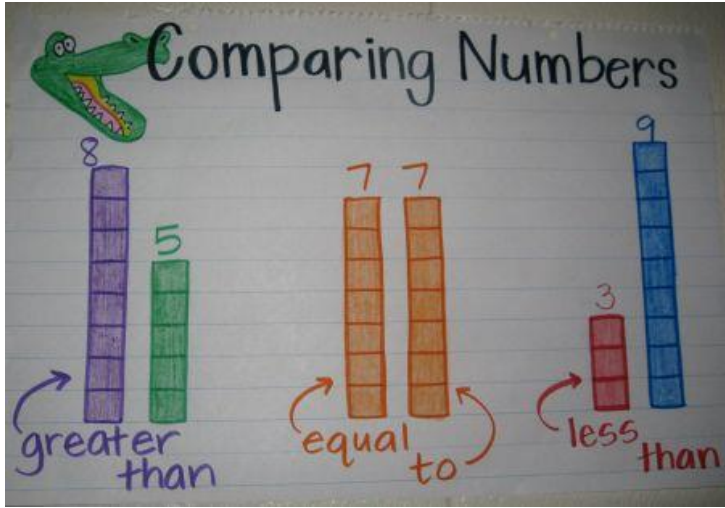 Comparing Numbers
8 5
greater
than
7 7
equal
to
3 9
less
than